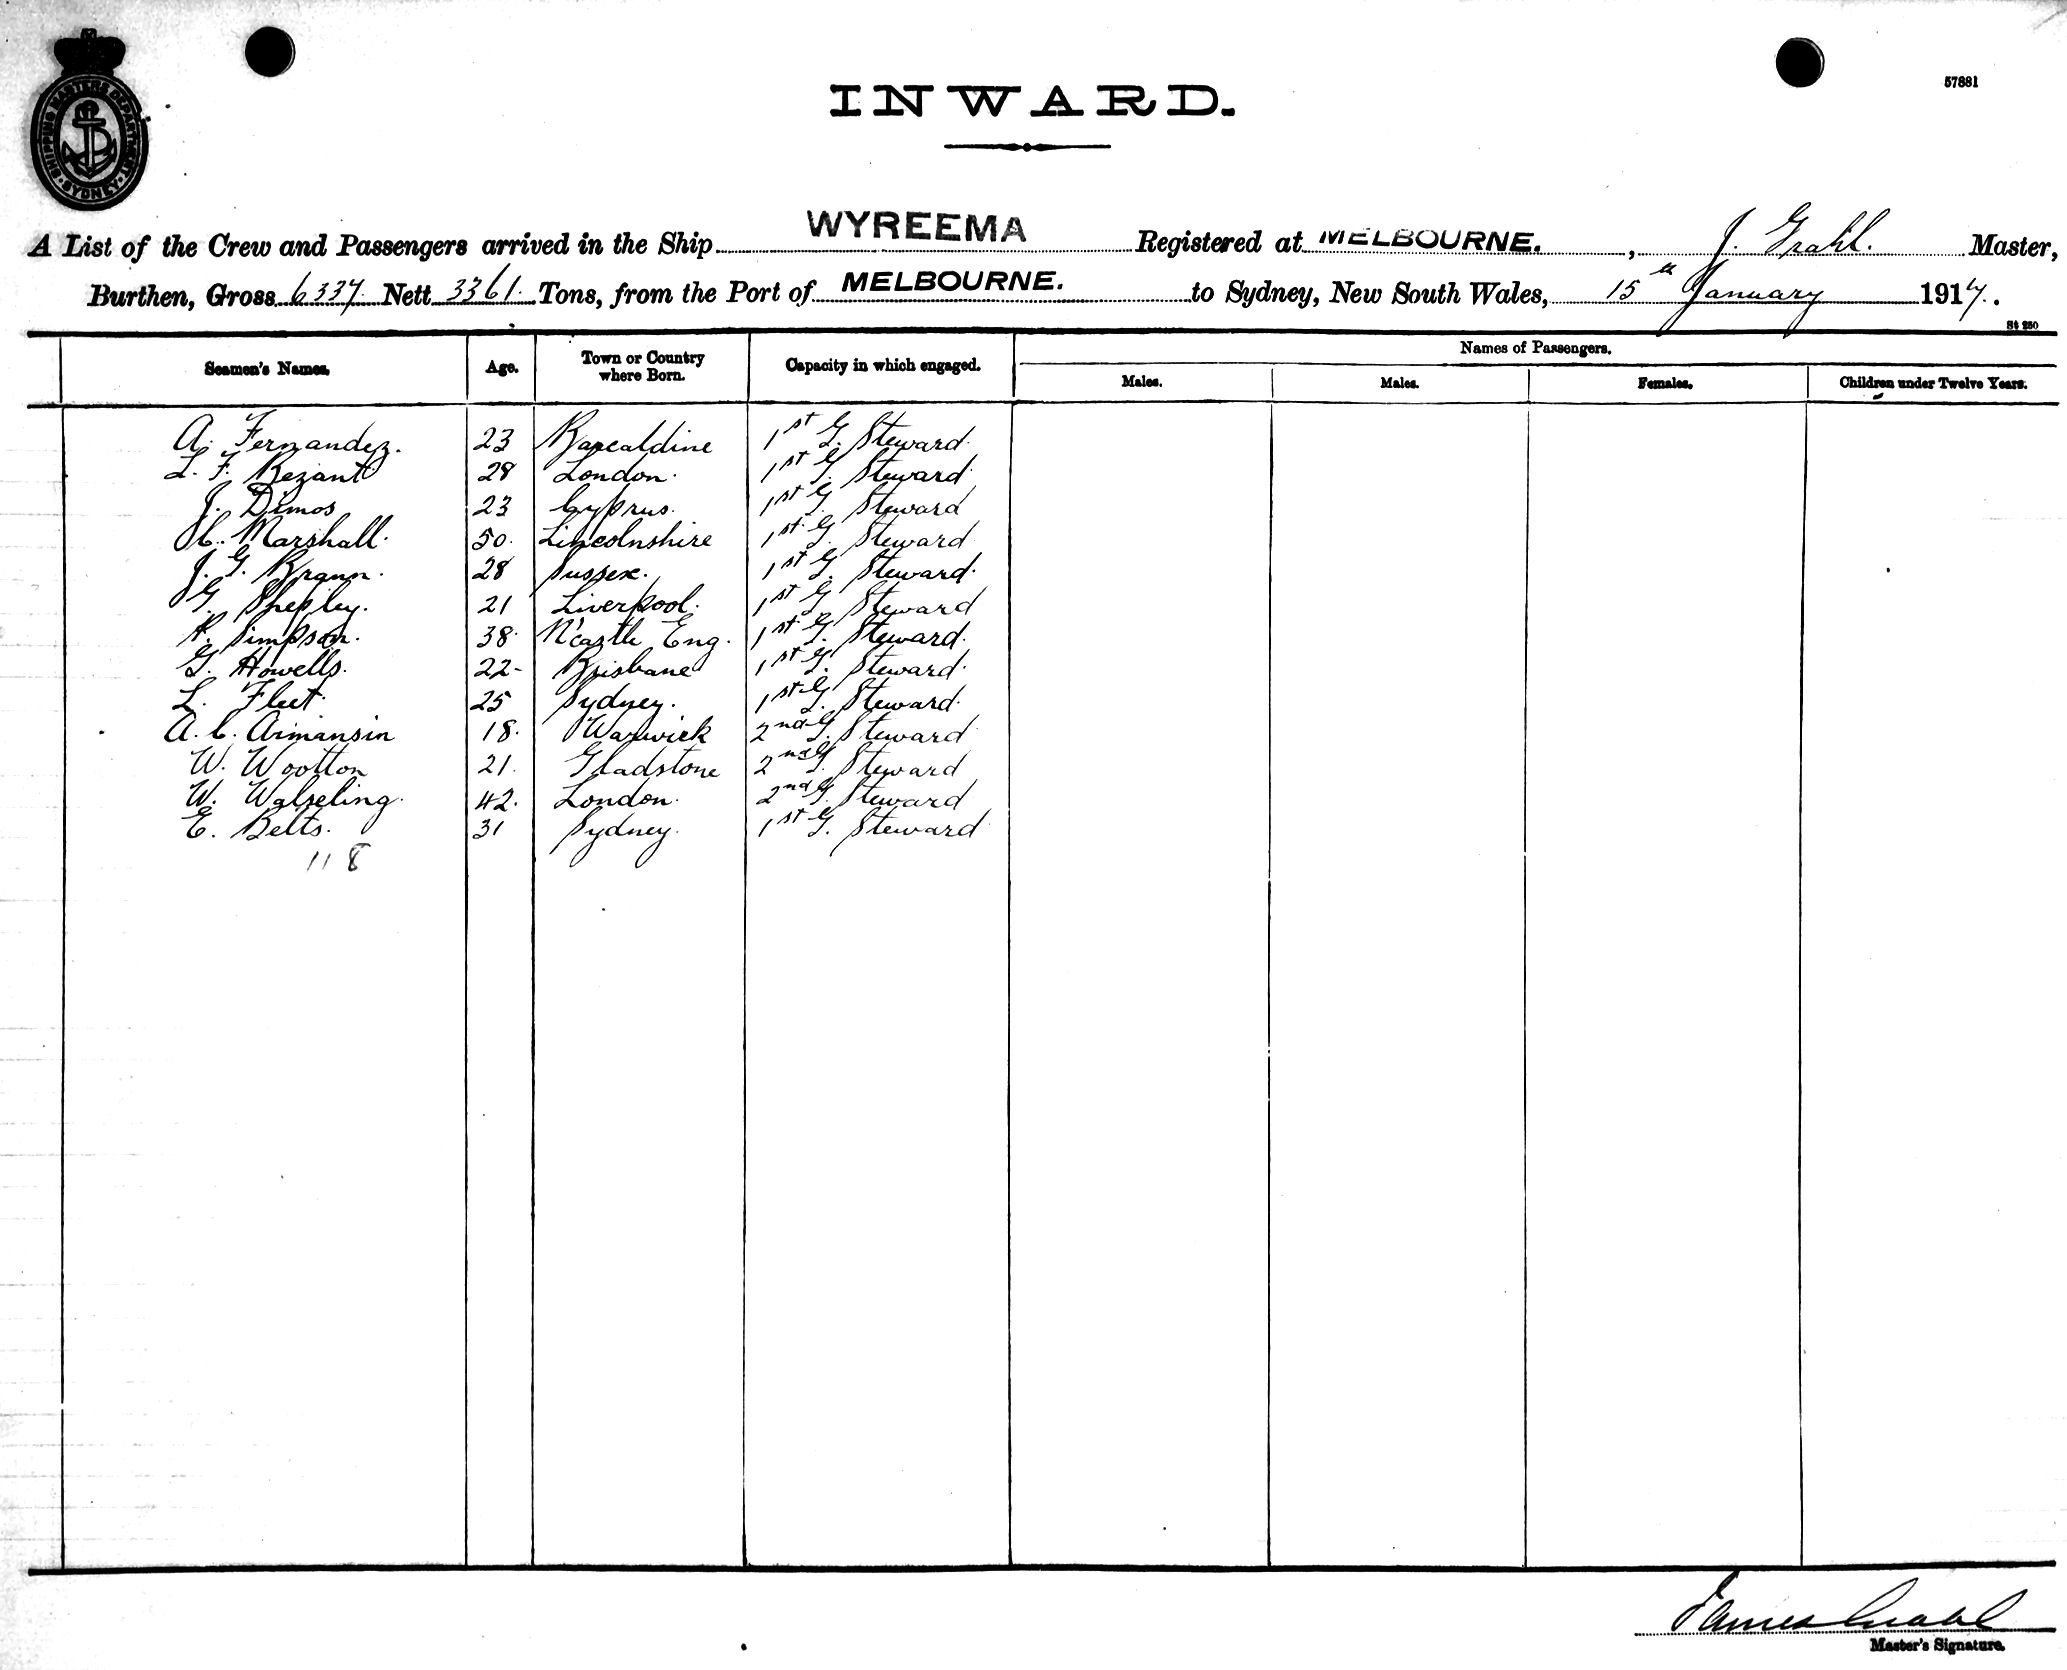 SHIPPING MASTERS DEPARTMENT
SYDNEY
57881
INWARD.
A List of the Crew and Passengers arrived in the Ship WYREEMA Registered at MELBOURNE. , J. Grahl. Master,
Burthen, Gross 6337. Nett 3361. Tons, from the Port of MELBOURNE. to Sydney, New South Wales, 15th January 1917.
St 250
Seamen's Names. Age. Town or Country where Born. Capacity in which engaged. Names of Passengers.
Males. Males. Females. Children under Twelve Years.
A. Fernandez. 23 Barcaldine 1st G. Steward.
L. F. Bezant 28 London. 1st G. Steward
J. Dimos 23 Cyprus. 1st G. Steward
C. Marshall. 50. Lincolnshire 1st G. Steward
J. G. Braun. 28 Sussex. 1st G. Steward.
G. Shepley. 21 Liverpool. 1st G. Steward
R. Simpson. 38. N'castle Eng. 1st G. Steward.
G. Howells. 22- Brisbane 1st G. Steward.
L. Fleet. 25 Sydney. 1st G. Steward.
A. C. Aimansin 18. Warwick 2nd G. Steward
W. Wootton 21. Gladstone 2nd G. Steward
W. Walseling. 42. London. 2nd G. Steward
E. Belts. 31 Sydney. 1st G. Steward
118
James Grahl
Master's Signature.